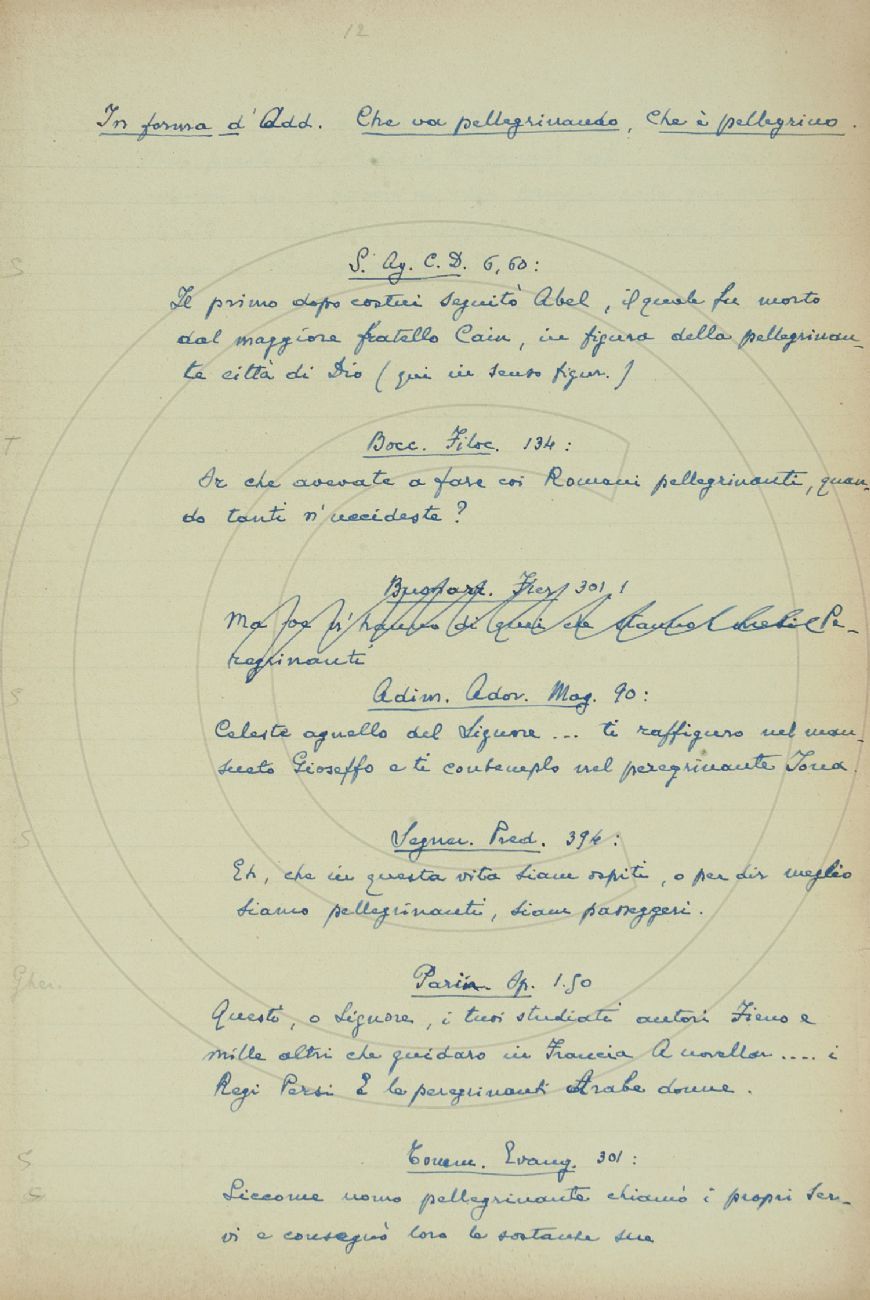 12
In forma d'Add. Che va pellegrinando, Che è pellegrino.
S. Ag. C. D. 6, 60:
Il primo dopo costui seguitò Abel, il quale fu morto
dal maggiore fratello Cain, in figura della pellegrinan-
te città di Dio (qui in senso figur.)
Bocc. Filoc. 134:
Or che avevate a fare coi Romani pellegrinanti, quan-
do tanti n'uccideste?
Buonarr. Fier. 301.
Ma se v'hanno di quei che stanno Pe-
regrinanti
Adim. Ador. Mag. 90:
Celeste agnello del Signore ... ti raffiguro nel man-
sueto Gioseffo e ti contemplo nel peregrinante Iona.
Segner. Pred. 394:
Eh, che in questa vita siam ospiti, o per dir meglio
siamo pellegrinanti, siam passeggeri.
Parin. Op. 1.50
Questi, o Signore, i tuoi studiati autori Fieno e
mille altri che guidaro in Francia A novellar .... i
Regi Persi E le peregrinanti Arabe donne.
Tomm. Evang. 301:
Siccome uomo pellegrinante chiamò i propri ser-
vi e consegnò loro le sostanze sue
S
T
S
S
Gher.
S
S